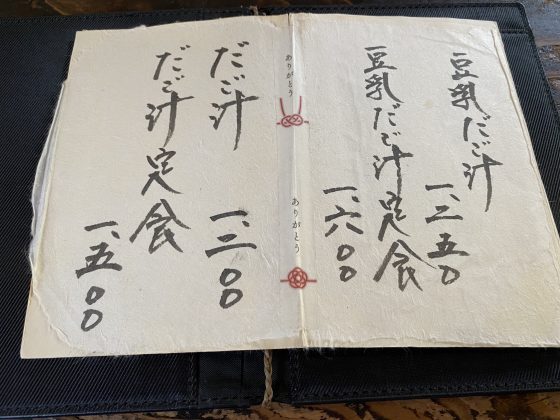 豆乳だご汁
一、二五〇
豆乳だご汁定食
一、六〇〇
ありがとう
ありがとう
だご汁
一、二〇〇
だご汁定食
一、五〇〇